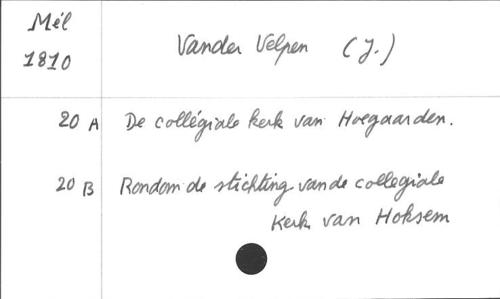 Mél
1810
Vander Velpen (J.)
20 A De collégiale kerk van Hoegaarden.
20 B Rondom de stichting van de collegiale
Kerk van Hoksem